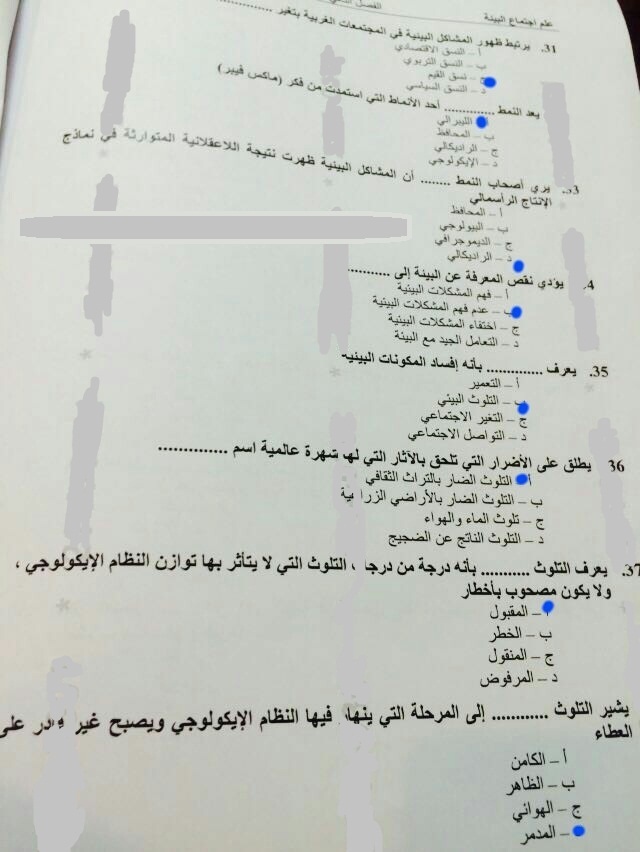 علم اجتماع البيئة
الفصل
31. يرتبط ظهور المشاكل البيئية في المجتمعات الغربية بتغير ..............
أ – النسق الاقتصادي
ب – النسق التربوي
– نسق القيم
د – النسق السياسي
يعد النمط ............. أحد الأنماط التي استمدت من فكر (ماكس فيبر)
الليبرالي
ب – المحافظ
ج – الراديكالي
د – الإيكولوجي
3. يري أصحاب النمط ........ أن المشاكل البيئية ظهرت نتيجة اللاعقلانية المتوارثة في نماذج
الإنتاج الرأسمالي
أ – المحافظ
ب – البيولوجي
ج – الديموجرافي
د – الراديكالي
4. يؤدي نقص المعرفة عن البيئة إلى ...........
أ – فهم المشكلات البيئية
ب – عدم فهم المشكلات البيئية
ج – اختفاء المشكلات البيئية
د – التعامل الجيد مع البيئة
35. يعرف ............. بأنه إفساد المكونات البيئية
أ – التعمير
ب – التلوث البيئي
ج – التغير الاجتماعي
د – التواصل الاجتماعي
36 يطلق على الأضرار التي تلحق بالآثار التي لها شهرة عالمية اسم ..............
أ التلوث الضار بالتراث الثقافي
ب – التلوث الضار بالأراضي الزراعية
ج – تلوث الماء والهواء
د – التلوث الناتج عن الضجيج
37. يعرف التلوث ........... بأنه درجة من درجات التلوث التي لا يتأثر بها توازن النظام الإيكولوجي ،
ولا يكون مصحوب بأخطار
أ – المقبول
ب – الخطر
ج – المنقول
د – المرفوض
يشير التلوث ............ إلى المرحلة التي ينهار فيها النظام الإيكولوجي ويصبح غير قادر على
العطاء
أ – الكامن
ب – الظاهر
ج – الهوائي
– المدمر